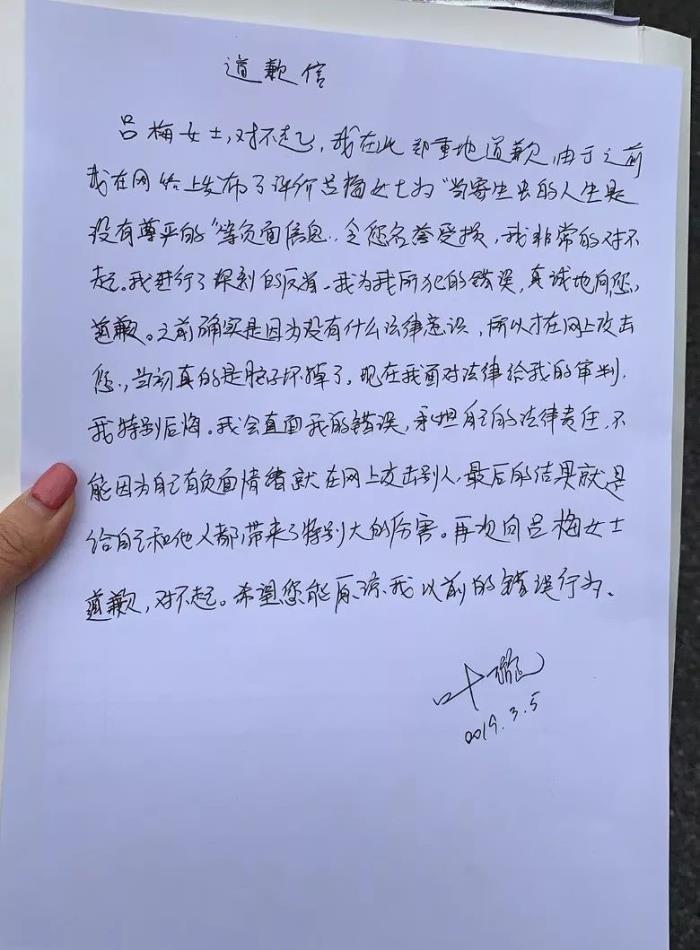 道歉信
吕梅女士,对不起,我在此郑重地道歉,由于之前
我在网络上发布了评价吕梅女士为"当寄生虫的人生是
没有尊严的"等负面信息..令您名誉受损,我非常的对不
起。我进行了深刻的反省。我为我所犯的错误,真诚地向您,
道歉。之前确实是因为没有什么法律意识,所以才在网上攻击
您.,当初真的是脑子坏掉了。现在我面对法律给我的审判.
我特别后悔。我会直面我的错误,承担自己的法律责任.不
能因为自己有负面情绪就在网上攻击别人.最后的结果就是
给自己和他人都带来了特别大的伤害。再次向吕梅女士
道歉,对不起。希望您能原谅我以前的错误行为.
叶璇
2019.3.5